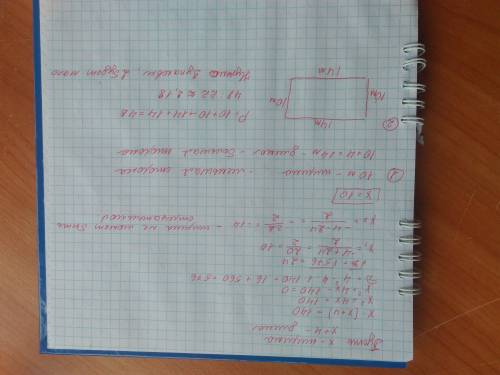 Пусть x - ширина
x+4 - длина
x·(x+4) = 140
x²+4x = 140
x²+4x-140=0
D = 4²-4·1·140 = 16+560=576
√D = √576 = 24
x₁ = (-4+24)/2 = 20/2 = 10
x₂ = (-4-24)/2 = -28/2 = -14 - ширина не может быть
отрицательной
x=10
① 10 м - ширина - меньшая сторона
10+4=14м - длина - большая сторона
② P = 10+10+14+14=48
48:22≈2,18
Нужно 3 упаковки, 2 будет мало
14м
10м
10м
14м